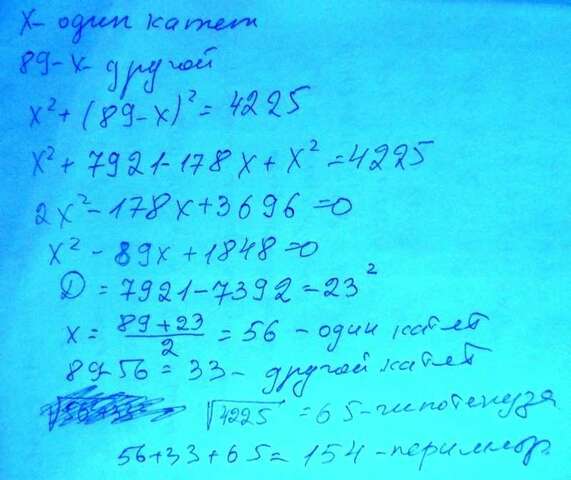 x - один катет
89-x - другой
x² + (89-x)² = 4225
x² + 7921 - 178x + x² = 4225
2x² - 178x + 3696 = 0
x² - 89x + 1848 = 0
D = 7921 - 7392 = 23²
x = (89+23)/2 = 56 - один катет
89-56 = 33 - другой катет
√4225 = 65 - гипотенуза
56+33+65 = 154 - периметр.